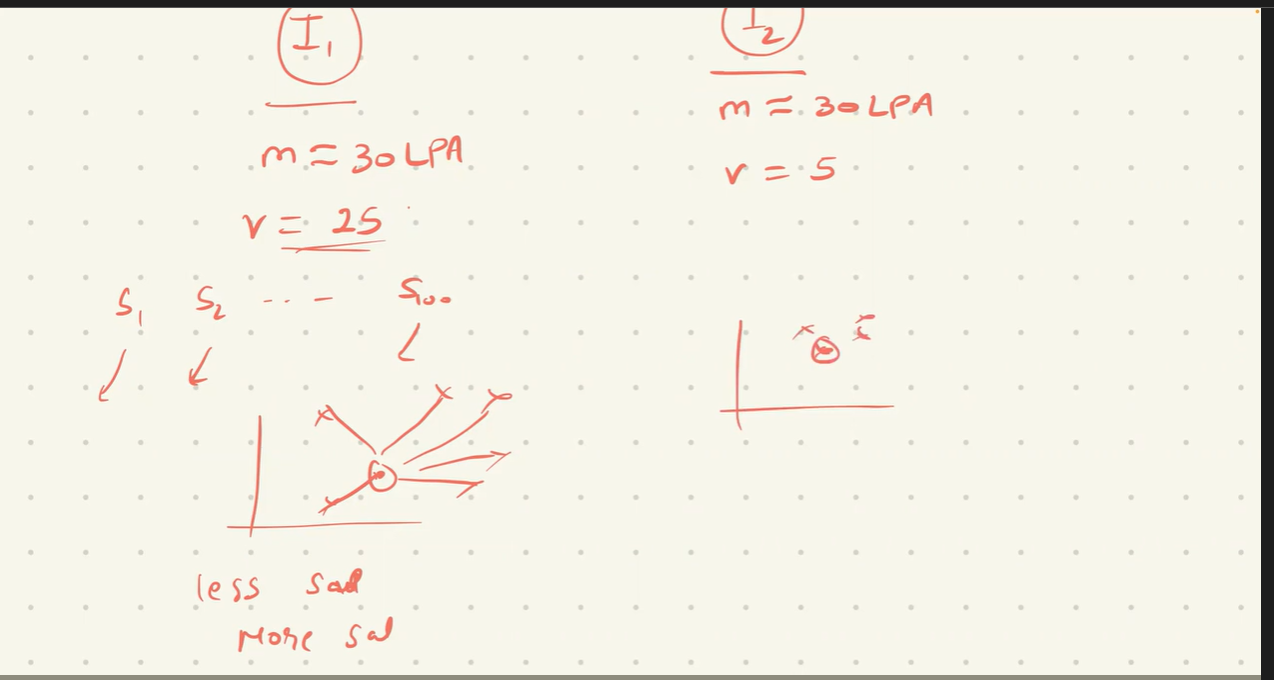 I₁
m ≈ 30 LPA
v = 25
S₁ S₂ ... – S₁₀₀
less sal
More sal
I₂
m ≈ 30 LPA
v = 5